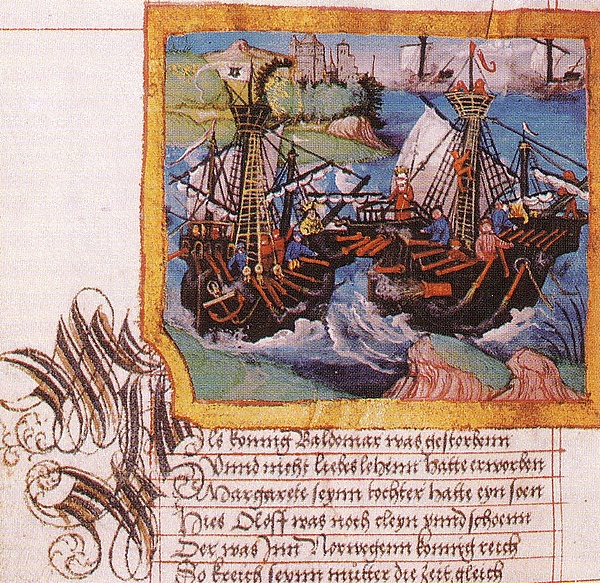 Als konnig Baldemar was gestorbenn
Vnnd nicht liebes lehenn hatte erworben
Margarete seynn tochter hatte eyn soen
Hies Oloff was noch cleyn vnnd schoenn
Der was Jnn Norwegenn konnig reich
So kreich seynn mutter die zeit gleich